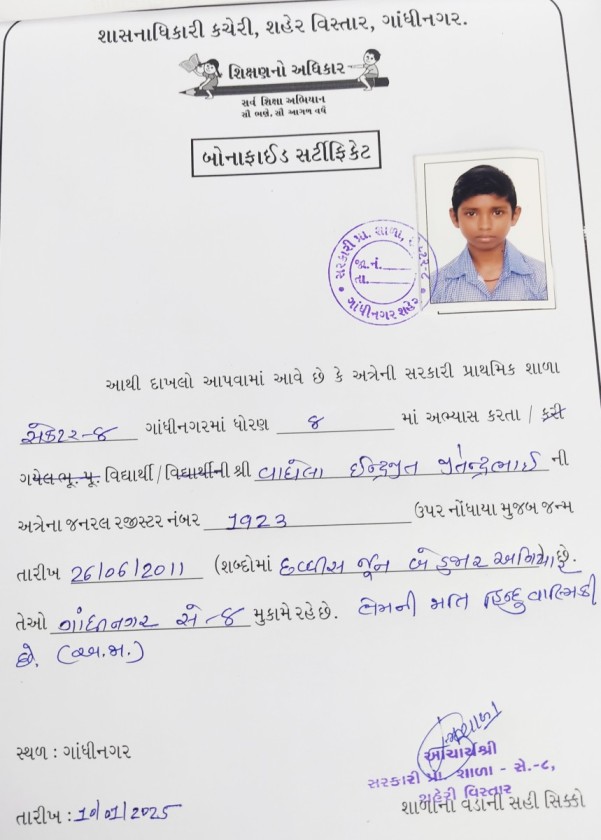 શાસનાધિકારી કચેરી, શહેર વિસ્તાર, ગાંધીનગર.
શિક્ષણનો અધિકાર
સર્વ શિક્ષા અભિયાન
સૌ ભણે, સૌ આગળ વધે
બોનાફાઈડ સર્ટીફિકેટ
સરકારી પ્રા. શાળા,
જા.નં.
તા.
ગાંધીનગર શહેર
આથી દાખલો આપવામાં આવે છે કે અત્રેની સરકારી પ્રાથમિક શાળા
સેકટર-૮ ગાંધીનગરમાં ધોરણ ૮ માં અભ્યાસ કરતા / કરી
ગયેલ ભૂ. પૂ. વિદ્યાર્થી / વિદ્યાર્થીની શ્રી વાઘેલા ઈન્દ્રજીત જીતેન્દ્રભાઈ ની
અત્રેના જનરલ રજીસ્ટર નંબર 1923 ઉપર નોંધાયા મુજબ જન્મ
તારીખ 26/06/2011 (શબ્દોમાં છવ્વીસ જૂન બે હજાર અગિયાર) છે.
તેઓ ગાંધીનગર સે-૮ મુકામે રહે છે. તેમની જાતિ હિન્દુ વાલ્મિકી
છે. (અ.જા.)
સ્થળ : ગાંધીનગર
આચાર્યશ્રી
સરકારી પ્રા. શાળા - સે.-૮,
શહેરી વિસ્તાર
શાળાના વડાની સહી સિક્કો
તારીખ : 10/01/2025